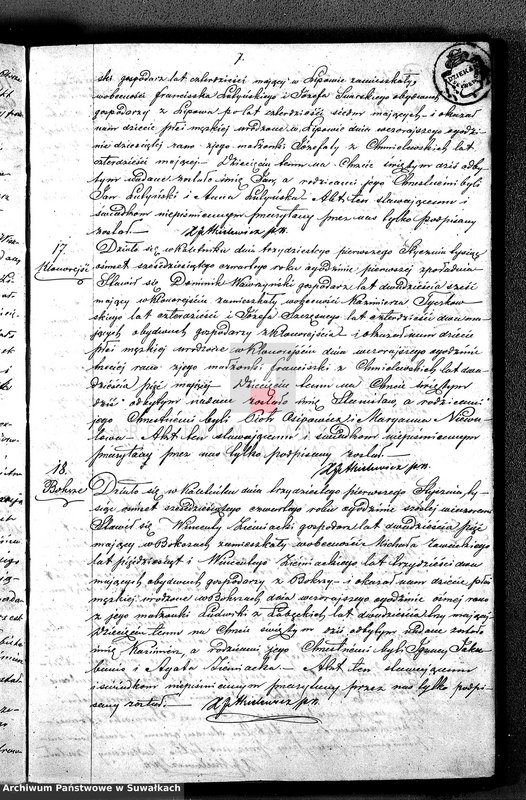 7.
ski gospodarz lat czterdzieści mający w Lipowie zamieszkały,
wobecności Franciszka Lutyńskiego i Józefa Suarskiego obydwóch
gospodarzy z Lipowa po lat czterdzieści siedm mających i okazał
nam dziecie płci męzkiej urodzone w Lipowie dnia wczorajszego o godzi-
nie dziesiątej rano z jego małżonki Józefaty z Chmielewskich lat
czterdzieści mającej. Dziecięciu temu na Chrzcie świętym dziś odby-
tym nadane zostało imię Jan, a rodzicami jego Chrzestnemi byli
Jan Lutyński i Anna Lutyńska. Akt ten stawającemu i
świadkom niepiśmiennym przeczytany przez nas tylko podpisany
został.
17.
Klonorejść
Działo się w Kaletniku dnia trzydziestego pierwszego Stycznia tysiąc
ośmset sześćdziesiątego czwartego roku o godzinie pierwszej z południa
Stawił się Dominik Wawrzyński gospodarz lat dwadzieścia sześć
mający w Klonorejściu zamieszkały wobecności Kazimierza
skiego lat czterdzieści i Józefa lat czterdzieści dwa ma-
jących obydwóch gospodarzy z Klonorejścia i okazał nam dziecie
płci męzkiej urodzone w Klonorejściu dnia wczorajszego o godzinie
rano z jego małżonki Franciszki z Chmielewskich lat dwa-
dzieścia pięć mającej. Dziecięciu temu na Chrzcie świętym
dziś odbytym nadane zostało imię Stanisław, a rodzicami
jego Chrzestnemi byli Piotr Osipowicz i Maryanna
Akt ten stawającemu i świadkom niepiśmiennym
przeczytany przez nas tylko podpisany został.
18.
Bokrze
Działo się w Kaletniku dnia trzydziestego pierwszego Stycznia ty-
siąc ośmset sześćdziesiątego czwartego roku o godzinie szóstej wieczorem
Stawił się Wincenty Ziemiacki gospodarz lat dwadzieścia pięć
mający w Bokszach zamieszkały wobecności Michała Zawadzkiego
lat pięćdziesiąt i Wincentego Ziemiackiego lat trzydzieści dwa
mających obydwóch gospodarzy z Bokszy i okazał nam dziecie płci
męzkiej urodzone w Bokszach dnia wczorajszego o godzinie ósmej rano
z jego małżonki Ludwiki z lat dwadzieścia trzy mającej
Dziecięciu temu na Chrzcie świętym dziś odbytym nadane zostało
imię Kazimierz, a rodzicami jego Chrzestnemi byli Ignacy Jaku-
bianis i Agata Ziemiacka. Akt ten stawającemu
i świadkom niepiśmiennym przeczytany przez nas tylko podpi-
sany został.
Archiwum Państwowe w Suwałkach